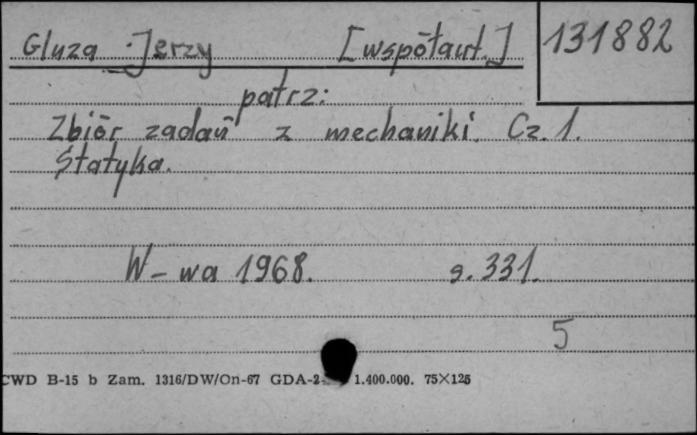 Gluza Jerzy [współaut.] 131882
patrz:
Zbiór zadań z mechaniki. Cz. 1.
Statyka.
W-wa 1968. s. 331.
5
CWD B-15 b Zam. 1316/DW/On-67 GDA-2 1.400.000. 75×125